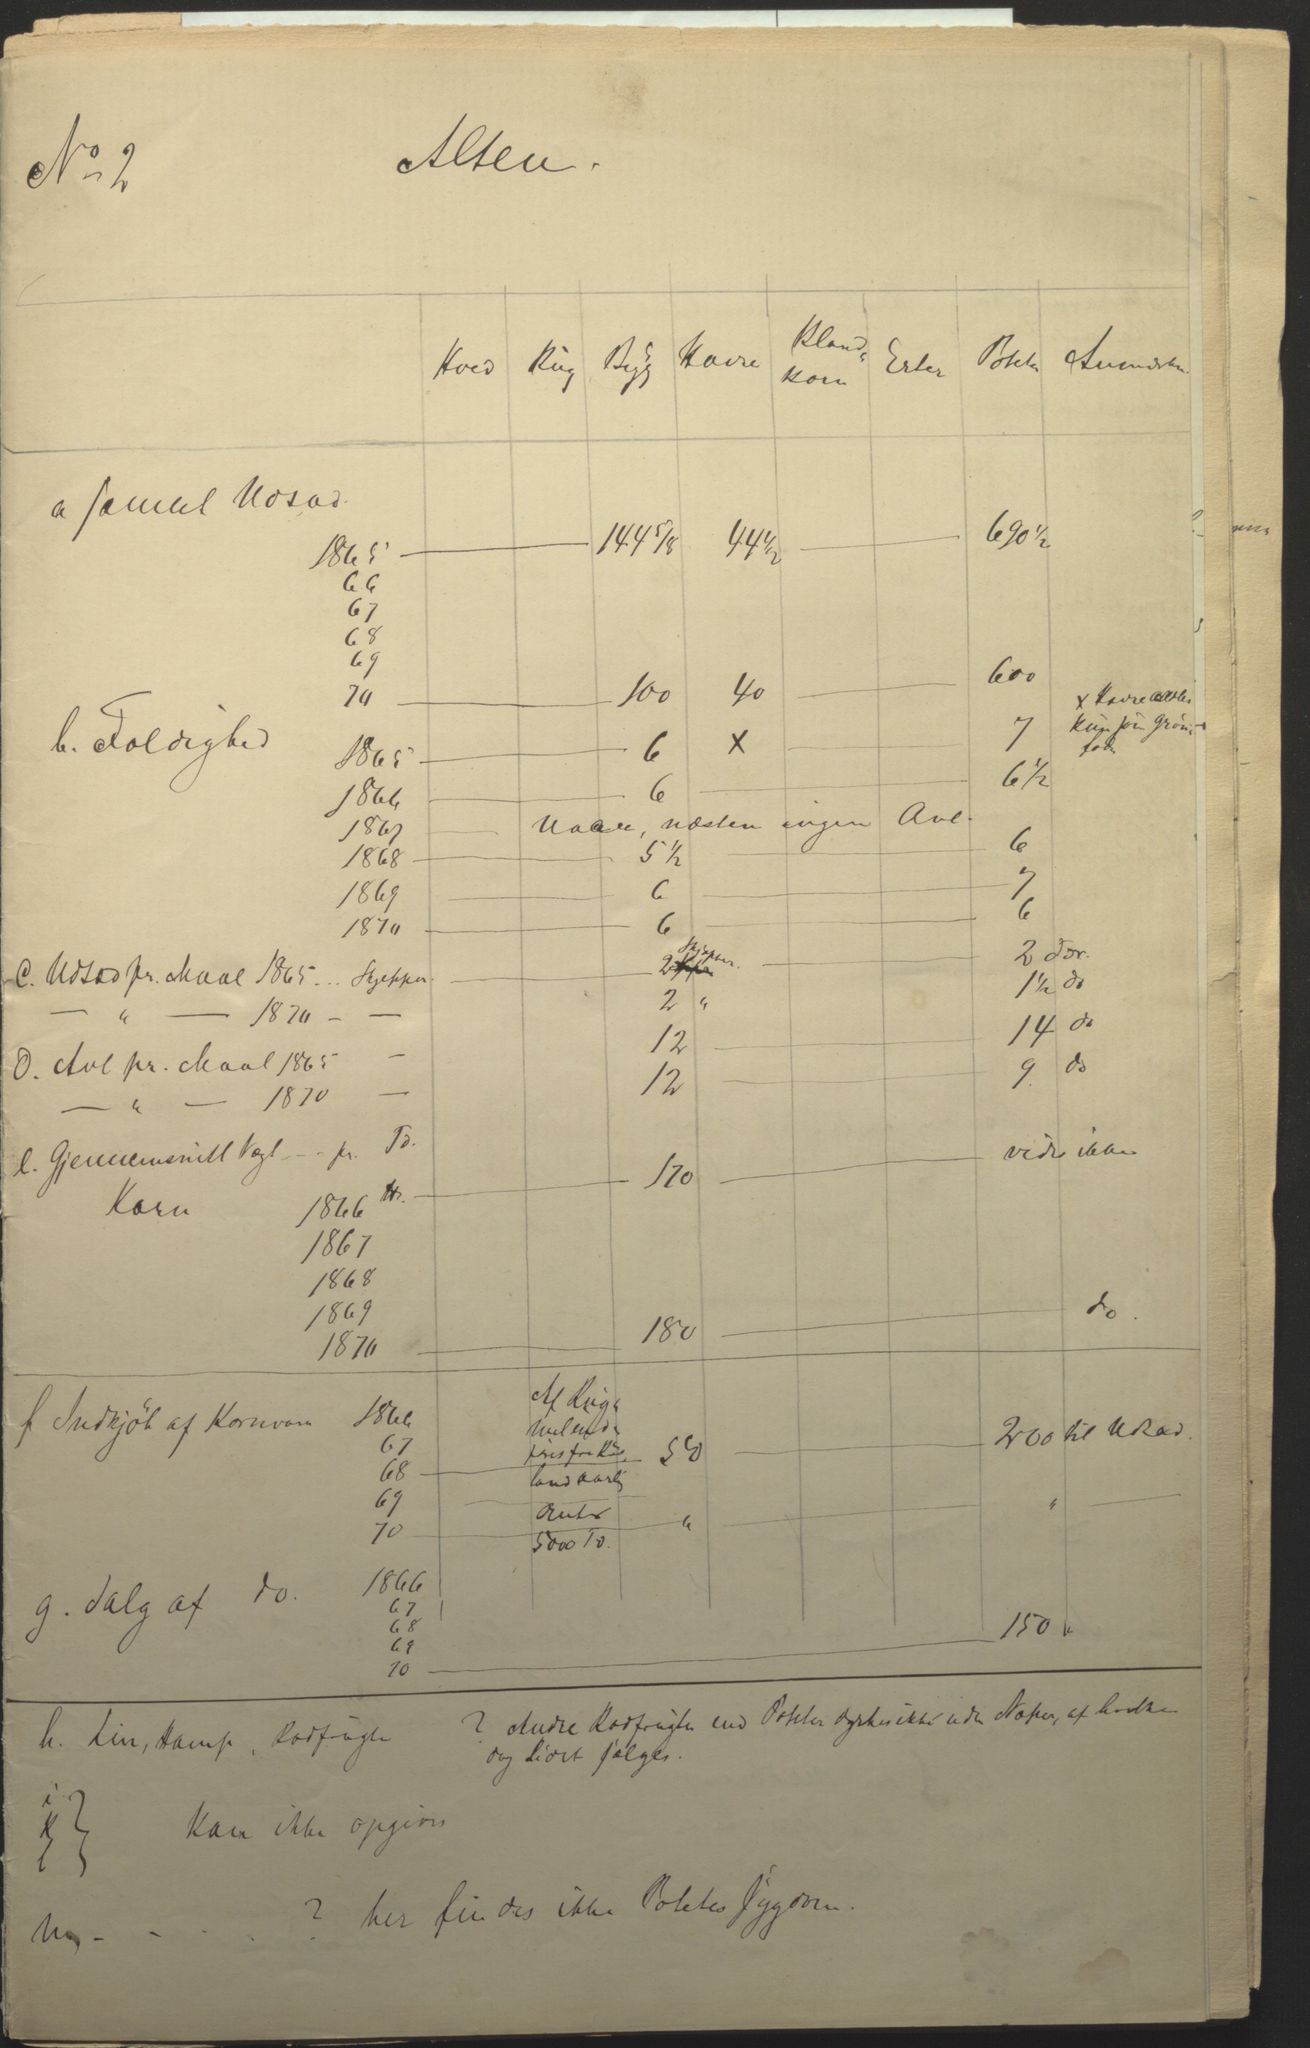 No 2 Alten.
Hved Rug Byg Havre Bland- Erter Poteter Anmerkn.
korn
a Samlet Udsæd
1865 144 5/8 44 1/2 690 1/2
66
67
68
69
70 100 40 600
b. Foldighed x Havre
kun som Grøn-
foder
1865 6 x 7
1866 6 6 1/2
1867 Uaar, næsten ingen Avl.
1868 5 1/2 6
1869 6 7
1870 6 6
C. Udsæd pr. Maal 1865 ... Skjepper 2 Skjepper. 2 Tdr.
— " — 1870 - — 2 " 1 1/2 do
D. Avl pr. Maal 1865 — 12 14 do
— " — 1870 — 12 9. do
e. Gjennemsnitt Vægt --- pr. Td.
Korn 1866 170 vides ikke
1867
1868
1869
1870 180 do.
f Indkjøb af Kornvare 1866 Af Rug
67
68 50 200 til Udsæd.
69
70 5000 Td. " "
g. Salg af do. 1866
67
68
69
70 150 "
h. Lin, Hamp, Rodfrugter ? Andre Rodfrugter end Poteter dyrkes ikke uden Næper, af hvilke
dog Lidet sælges.
i
k Kan ikke opgives
l
m - - - - ? her findes ikke Potetes Sygdom.